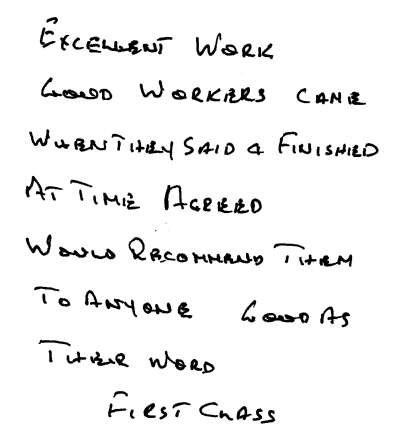 EXCELLENT WORK
GOOD WORKERS CAME
WHEN THEY SAID & FINISHED
AT TIME AGREED
WOULD RECOMMEND THEM
TO ANYONE GOOD AS
THEIR WORD
FIRST CLASS